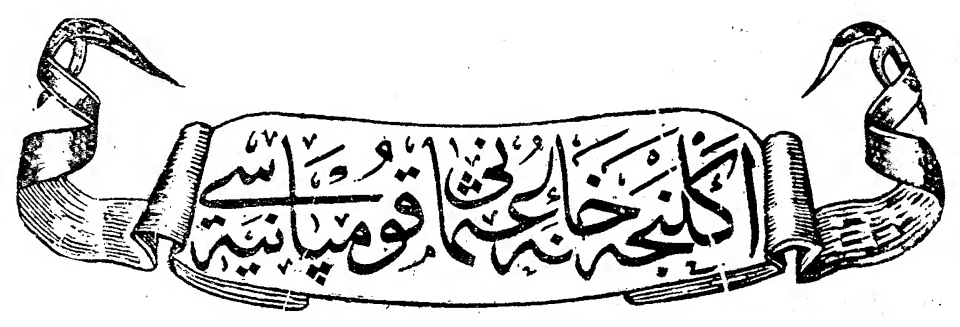 اكلنجه خانهٔ عثمانی قومپانیه سی